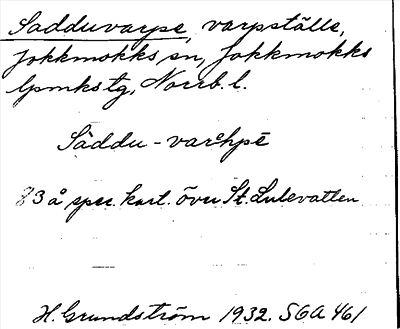 Sadduvarpe, varpställe,
Jokkmokks sn, Jokkmokks
lpmkstg, Norrb. l.
Säddu-varehpē
83 å spec. kart. över St. Lulevatten
H. Grundström 1932. SOA 461